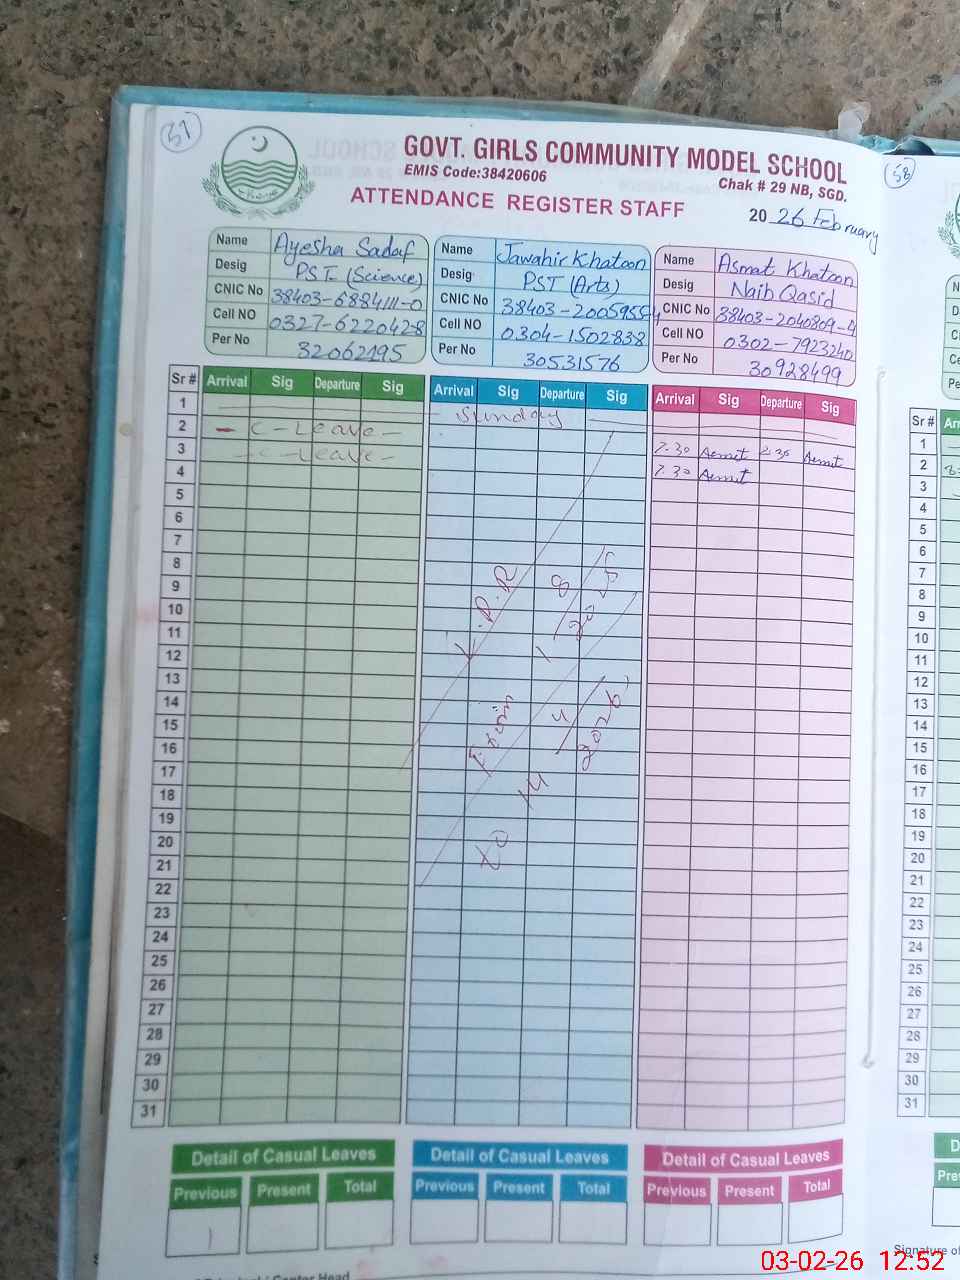 57
GOVT. GIRLS COMMUNITY MODEL SCHOOL
EMIS Code:38420606
Chak # 29 NB, SGD.
ATTENDANCE REGISTER STAFF
20 26 February
58
Name Ayesha Sadaf
Desig PST (Science)
CNIC No 38403-6884111-0
Cell NO 0327-6220428
Per No 32062195
Name Jawahir Khatoon
Desig PST (Arts)
CNIC No 38403-2005955-4
Cell NO 0304-1502838
Per No 30531576
Name Asmat Khatoon
Desig Naib Qasid
CNIC No 38403-2040809-4
Cell NO 0302-7923240
Per No 30928499
Sr # Arrival Sig Departure Sig Arrival Sig Departure Sig Arrival Sig Departure Sig
1 Sunday
2 - C - Leave - 7.30 Asmat 2.30 Asmat
3 - C - Leave - 7.30 Asmat
4
5
6
7
8
9
10
11
12
13
14
15
16
17
18
19
20
21
22
23
24
25
26
27
28
29
30
31
L.P.R
1 8 2025
to 14 4 2026
Detail of Casual Leaves
Previous Present Total
Detail of Casual Leaves
Previous Present Total
Detail of Casual Leaves
Previous Present Total
Center Head
Sr #
1
2
3
4
5
6
7
8
9
10
11
12
13
14
15
16
17
18
19
20
21
22
23
24
25
26
27
28
29
30
31
Signature of
03-02-26 12:52